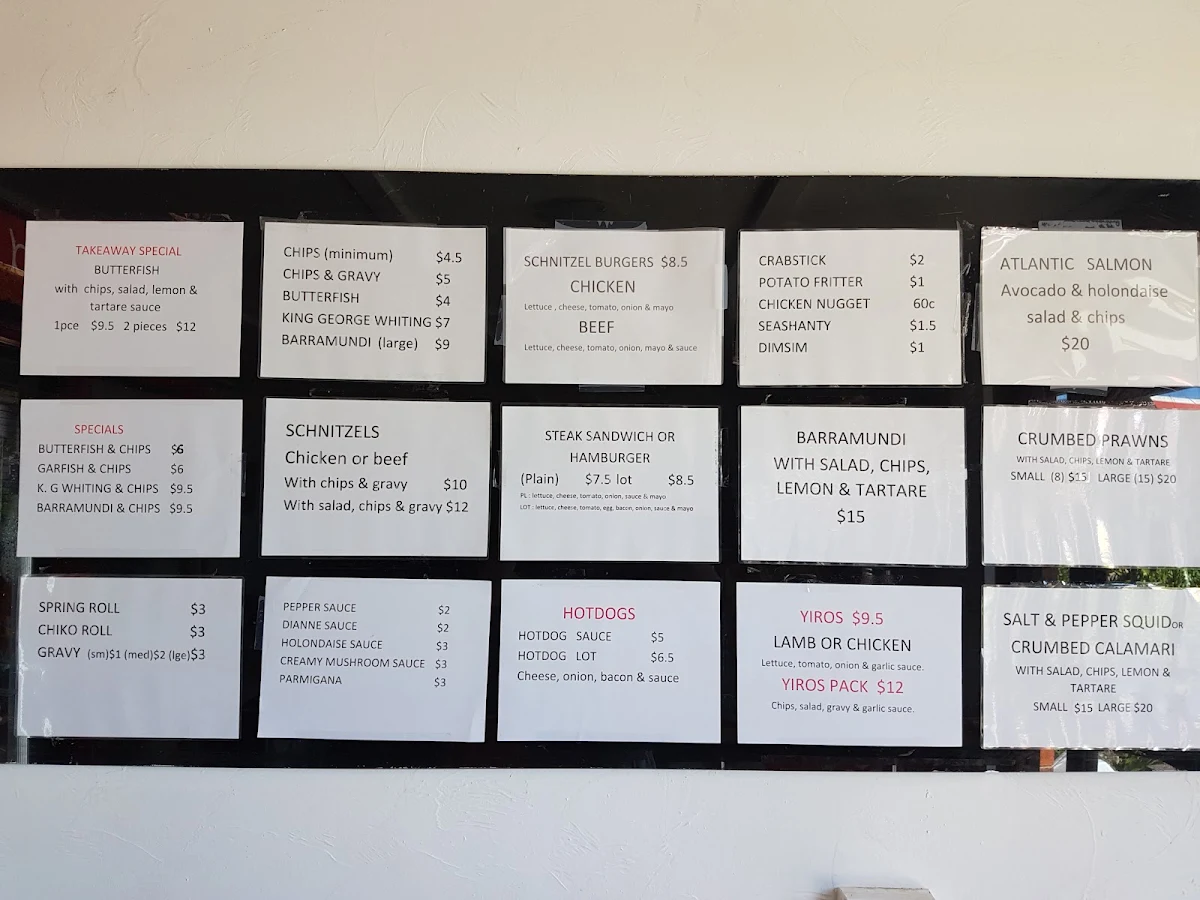 TAKEAWAY SPECIAL
BUTTERFISH
with chips, salad, lemon &
tartare sauce
1pce $9.5 2 pieces $12
CHIPS (minimum) $4.5
CHIPS & GRAVY $5
BUTTERFISH $4
KING GEORGE WHITING $7
BARRAMUNDI (large) $9
SCHNITZEL BURGERS $8.5
CHICKEN
Lettuce , cheese, tomato, onion & mayo
BEEF
Lettuce, cheese, tomato, onion, mayo & sauce
CRABSTICK $2
POTATO FRITTER $1
CHICKEN NUGGET 60c
SEASHANTY $1.5
DIMSIM $1
ATLANTIC SALMON
Avocado & holondaise
salad & chips
$20
SPECIALS
BUTTERFISH & CHIPS $6
GARFISH & CHIPS $6
K. G WHITING & CHIPS $9.5
BARRAMUNDI & CHIPS $9.5
SCHNITZELS
Chicken or beef
With chips & gravy $10
With salad, chips & gravy $12
STEAK SANDWICH OR
HAMBURGER
(Plain) $7.5 lot $8.5
PL : lettuce, cheese, tomato, onion, sauce & mayo
LOT : lettuce, cheese, tomato, egg, bacon, onion, sauce & mayo
BARRAMUNDI
WITH SALAD, CHIPS,
LEMON & TARTARE
$15
CRUMBED PRAWNS
WITH SALAD, CHIPS, LEMON & TARTARE
SMALL (8) $15 LARGE (15) $20
SPRING ROLL $3
CHIKO ROLL $3
GRAVY (sm)$1 (med)$2 (lge)$3
PEPPER SAUCE $2
DIANNE SAUCE $2
HOLONDAISE SAUCE $3
CREAMY MUSHROOM SAUCE $3
PARMIGANA $3
HOTDOGS
HOTDOG SAUCE $5
HOTDOG LOT $6.5
Cheese, onion, bacon & sauce
YIROS $9.5
LAMB OR CHICKEN
Lettuce, tomato, onion & garlic sauce.
YIROS PACK $12
Chips, salad, gravy & garlic sauce.
SALT & PEPPER SQUID OR
CRUMBED CALAMARI
WITH SALAD, CHIPS, LEMON &
TARTARE
SMALL $15 LARGE $20